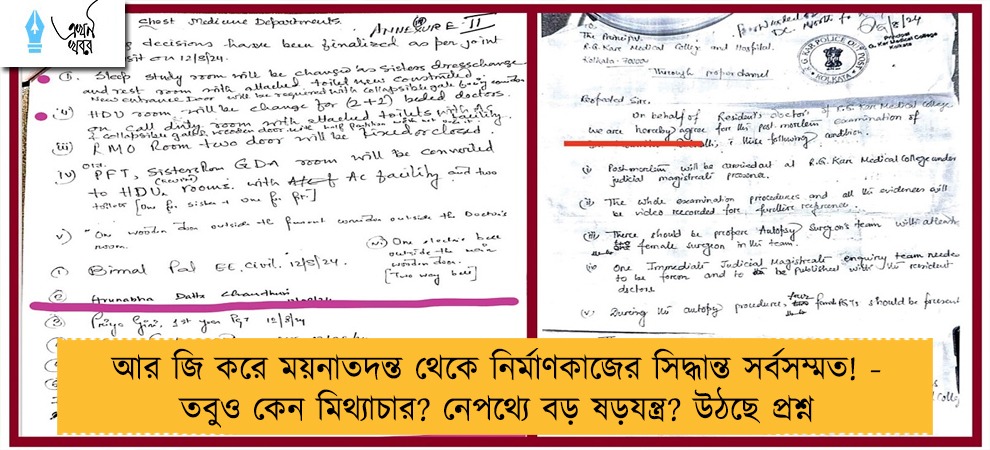 এখন
খবর
Chest Medicine Departments.
ANNEXURE - II
decisions have been finalized as per joint
visit on 12/8/24.
(i). Sleep study room will be changed as Sisters dress change
and rest room with attached toilet new constructed
New entrance Door will be required with collapsible gate
(ii) HDU room will be change for (2+1) beded doctors
on call duty room with attached toilets with AC
(iii) RMO Room - two door will be fixed or closed.
iv) PFT, Sister Room GDA room will be converted
to HDU rooms. with AC facility and two
toilets [One for sister + One for pt.]
v) One wooden door outside the corridor outside the Doctor's
room.
(vi) One electric bell
outside the main
wooden door.
[Two way bell]
(1) Bimal Pal EE. Civil. 12/8/24.
(2) Arunabha Datta Chaudhuri
(3) Priya Giri, 1st year PGT 12/8/24
To,
The Principal
R.G. Kar Medical College and Hospital
Kolkata-
Through proper channel
Principal
R. G. Kar Medical College
Kolkata
R. G. KAR POLICE OUT POST
KOLKATA
Respected Sir,
On behalf of Resident's doctors of R.G Kar Medical College
we are hereby agree for the post mortem examination of
following condition.
(i) Postmortem will be conducted at R.G. Kar Medical College under
judicial magistrate presence.
(ii) The whole examination procedures and all the evidences will
be video recorded for further reference.
(iii) There should be proper Autopsy Surgeon's team with atleast
two female surgeon in the team.
(iv) One Immediate Judicial Magistrate enquiry team needed
to be formed and to be published with the resident
doctors
(v) During the autopsy procedures, four female PGTs should be present
আর জি করে ময়নাতদন্ত থেকে নির্মাণকাজের সিদ্ধান্ত সর্বসম্মত! -
তবুও কেন মিথ্যাচার? নেপথ্যে বড় ষড়যন্ত্র? উঠছে প্রশ্ন